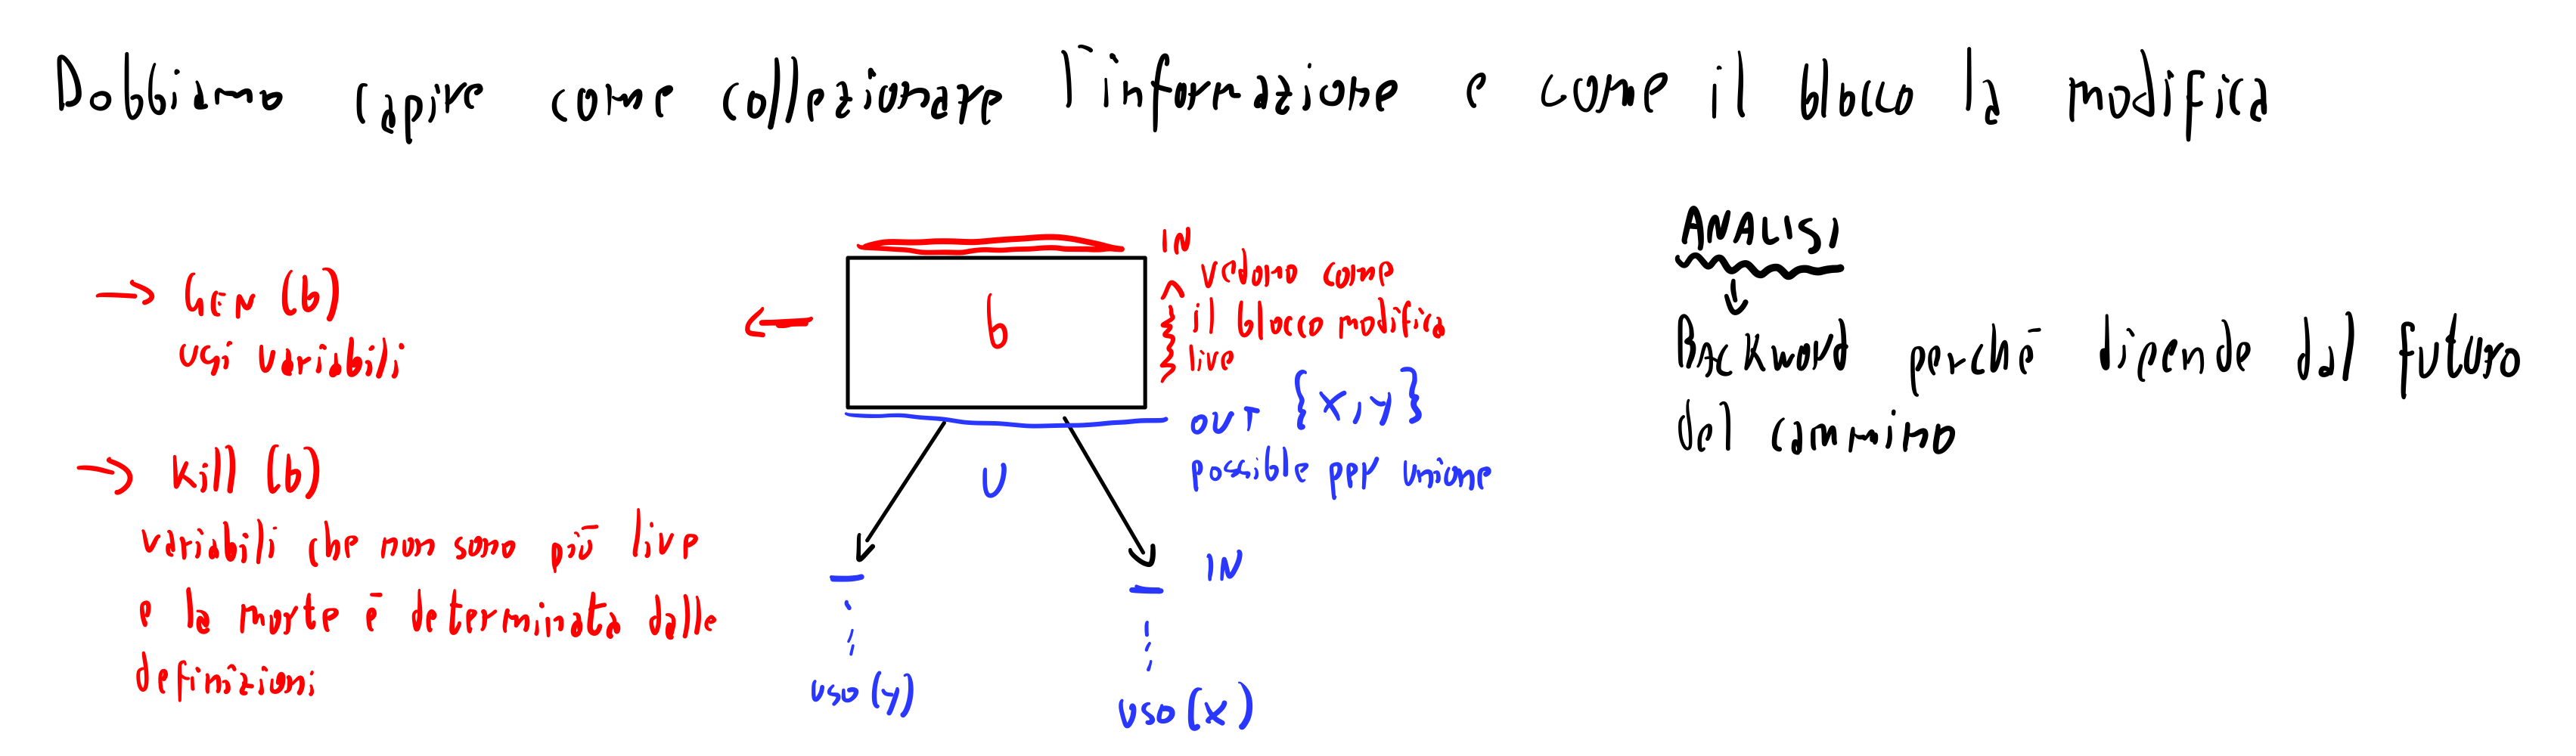 Dobbiamo capire come collezionare l'informazione e come il blocco la modifica
→ GEN (b)
usi variabili
→ Kill (b)
variabili che non sono più live
e la morte è determinata dalle
definizioni
b
IN
vedono come
il blocco modifica
live
OUT {x,y}
possible per unione
U
IN
uso(y)
uso(x)
ANALISI
Backword perché dipende dal futuro
del cammino